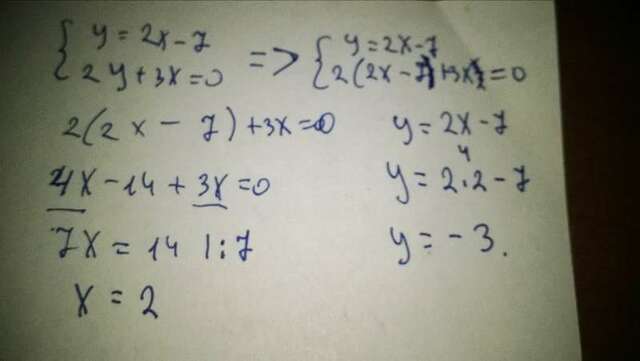 { y = 2x - 7
2y + 3x = 0 => { y = 2x - 7
2(2x - 7) + 3x = 0
2(2x - 7) + 3x = 0
4x - 14 + 3x = 0
7x = 14 | : 7
x = 2
y = 2x - 7
4
y = 2 · 2 - 7
y = -3.